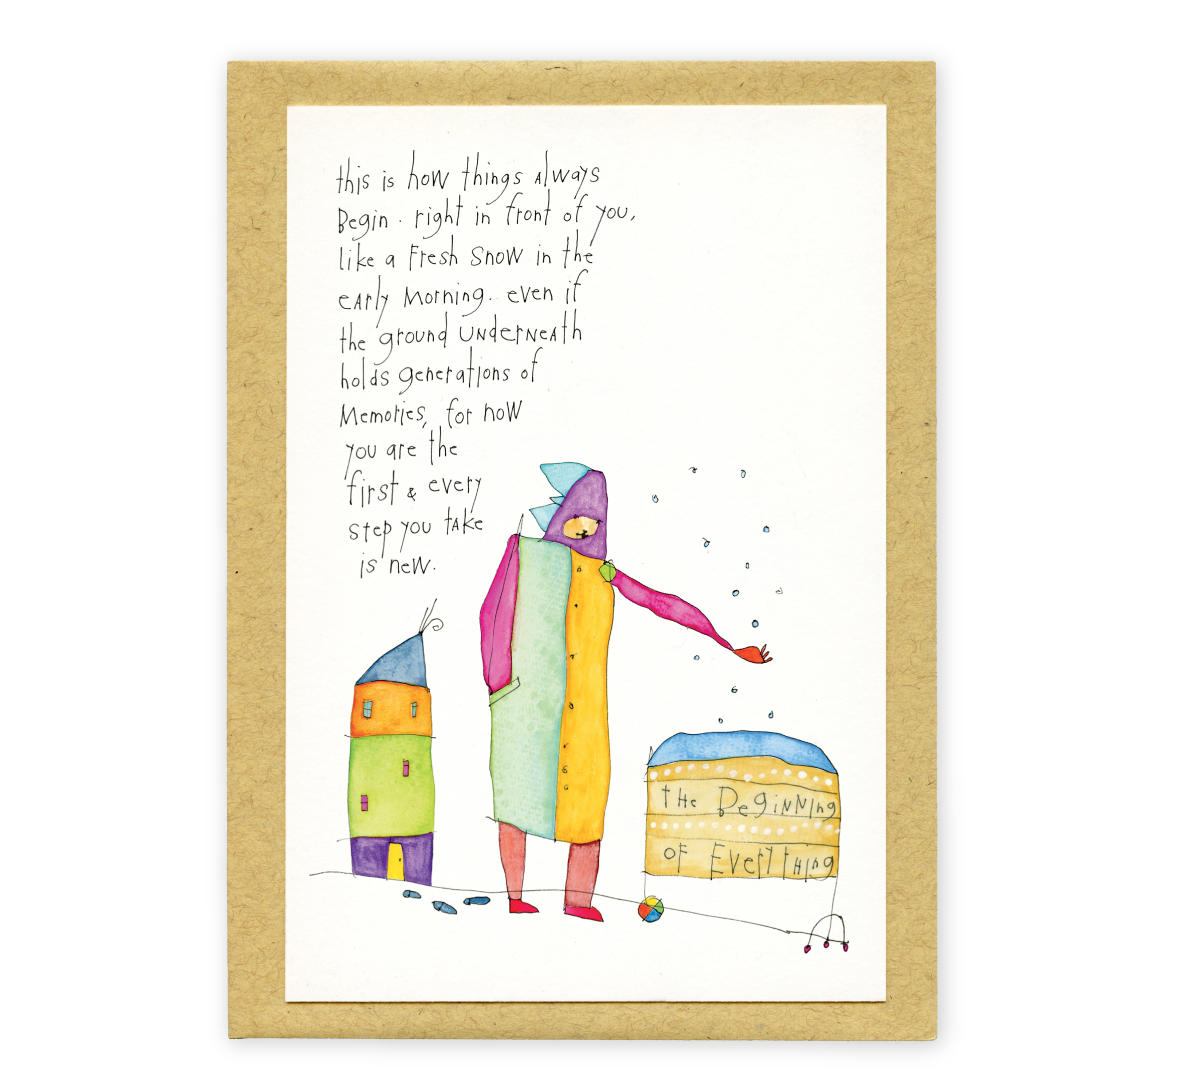 this is how things always
Begin. right in front of you,
like a fresh snow in the
early Morning. even if
the ground underneath
holds generations of
Memories, for now
you are the
first & every
step you take
is new.
the Beginning
of Everything